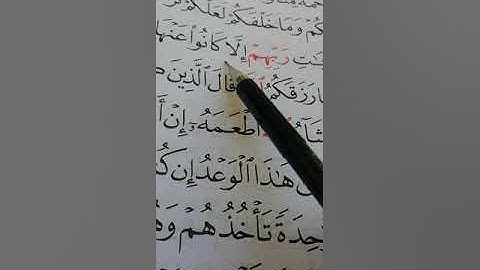 كُمْ وَمَا خَلْفَكُمْ لَعَلَّكُمْ تُرْ
ـَٰتِ رَبِّهِمْ إِلَّا كَانُوا۟ عَنْهَا
ا رَزَقَكُمُ قَالَ ٱلَّذِينَ كَ
شَآءُ أَطْعَمَهُۥٓ إِنْ أَ
هَٰذَا ٱلْوَعْدُ إِن كُنـ
حِدَةً تَأْخُذُهُمْ وَهُ